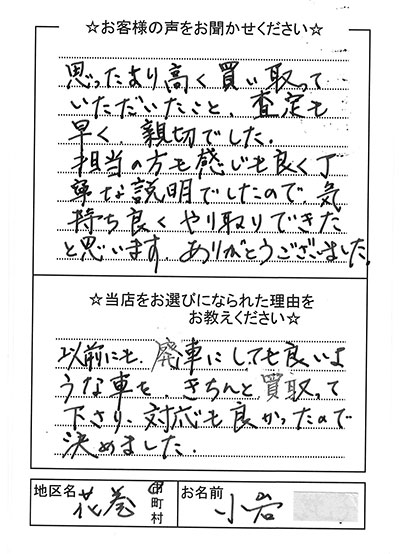 ☆お客様の声をお聞かせください☆
思ったより高く買い取って
いただいたこと、査定も
早く、親切でした。
担当の方も感じも良く丁
寧な説明でしたので、気
持ち良くやり取りできた
と思います。ありがとうございました。
☆当店をお選びになられた理由を
お教えください☆
以前にも、廃車にしても良いよ
うな車を、きちんと買取って
下さり、対応も良かったので
決めました。
地区名 花巻 市町村 お名前 小岩